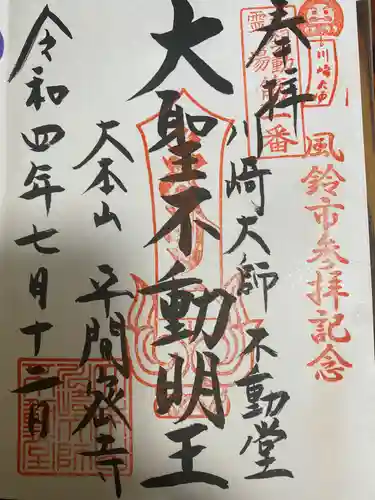 奉拝
川崎大師
風鈴市参拝記念
川崎大師 不動堂
大聖不動明王
大本山 平間寺
令和四年七月十二日